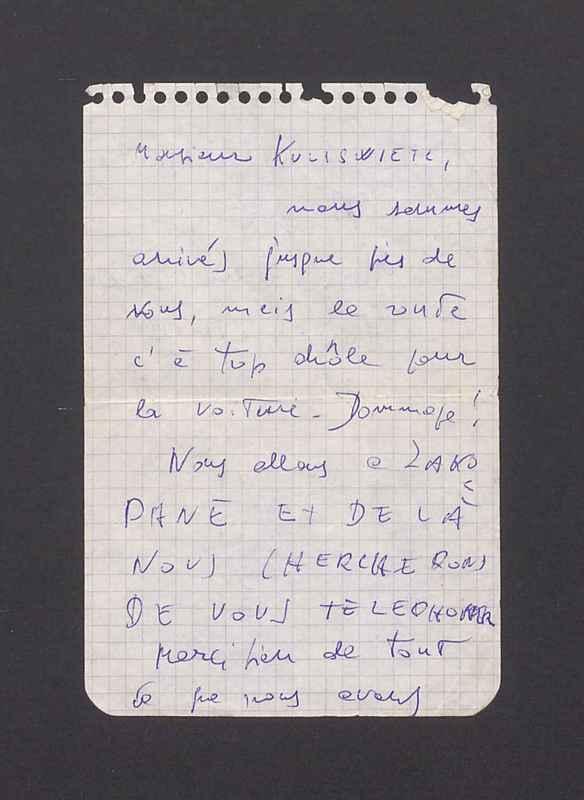 Monsieur KULISIEWICZ,
nous sommes
arrivés jusque près de
vous, mais la route
c'è trop drôle pour
la voiture. Dommage!
Nous allons a ZAKO
PANE ET DE LÀ
NOUS CHERCHERONS
DE VOUS TELEPHONER
Merci bien de tout
ce que nous avons